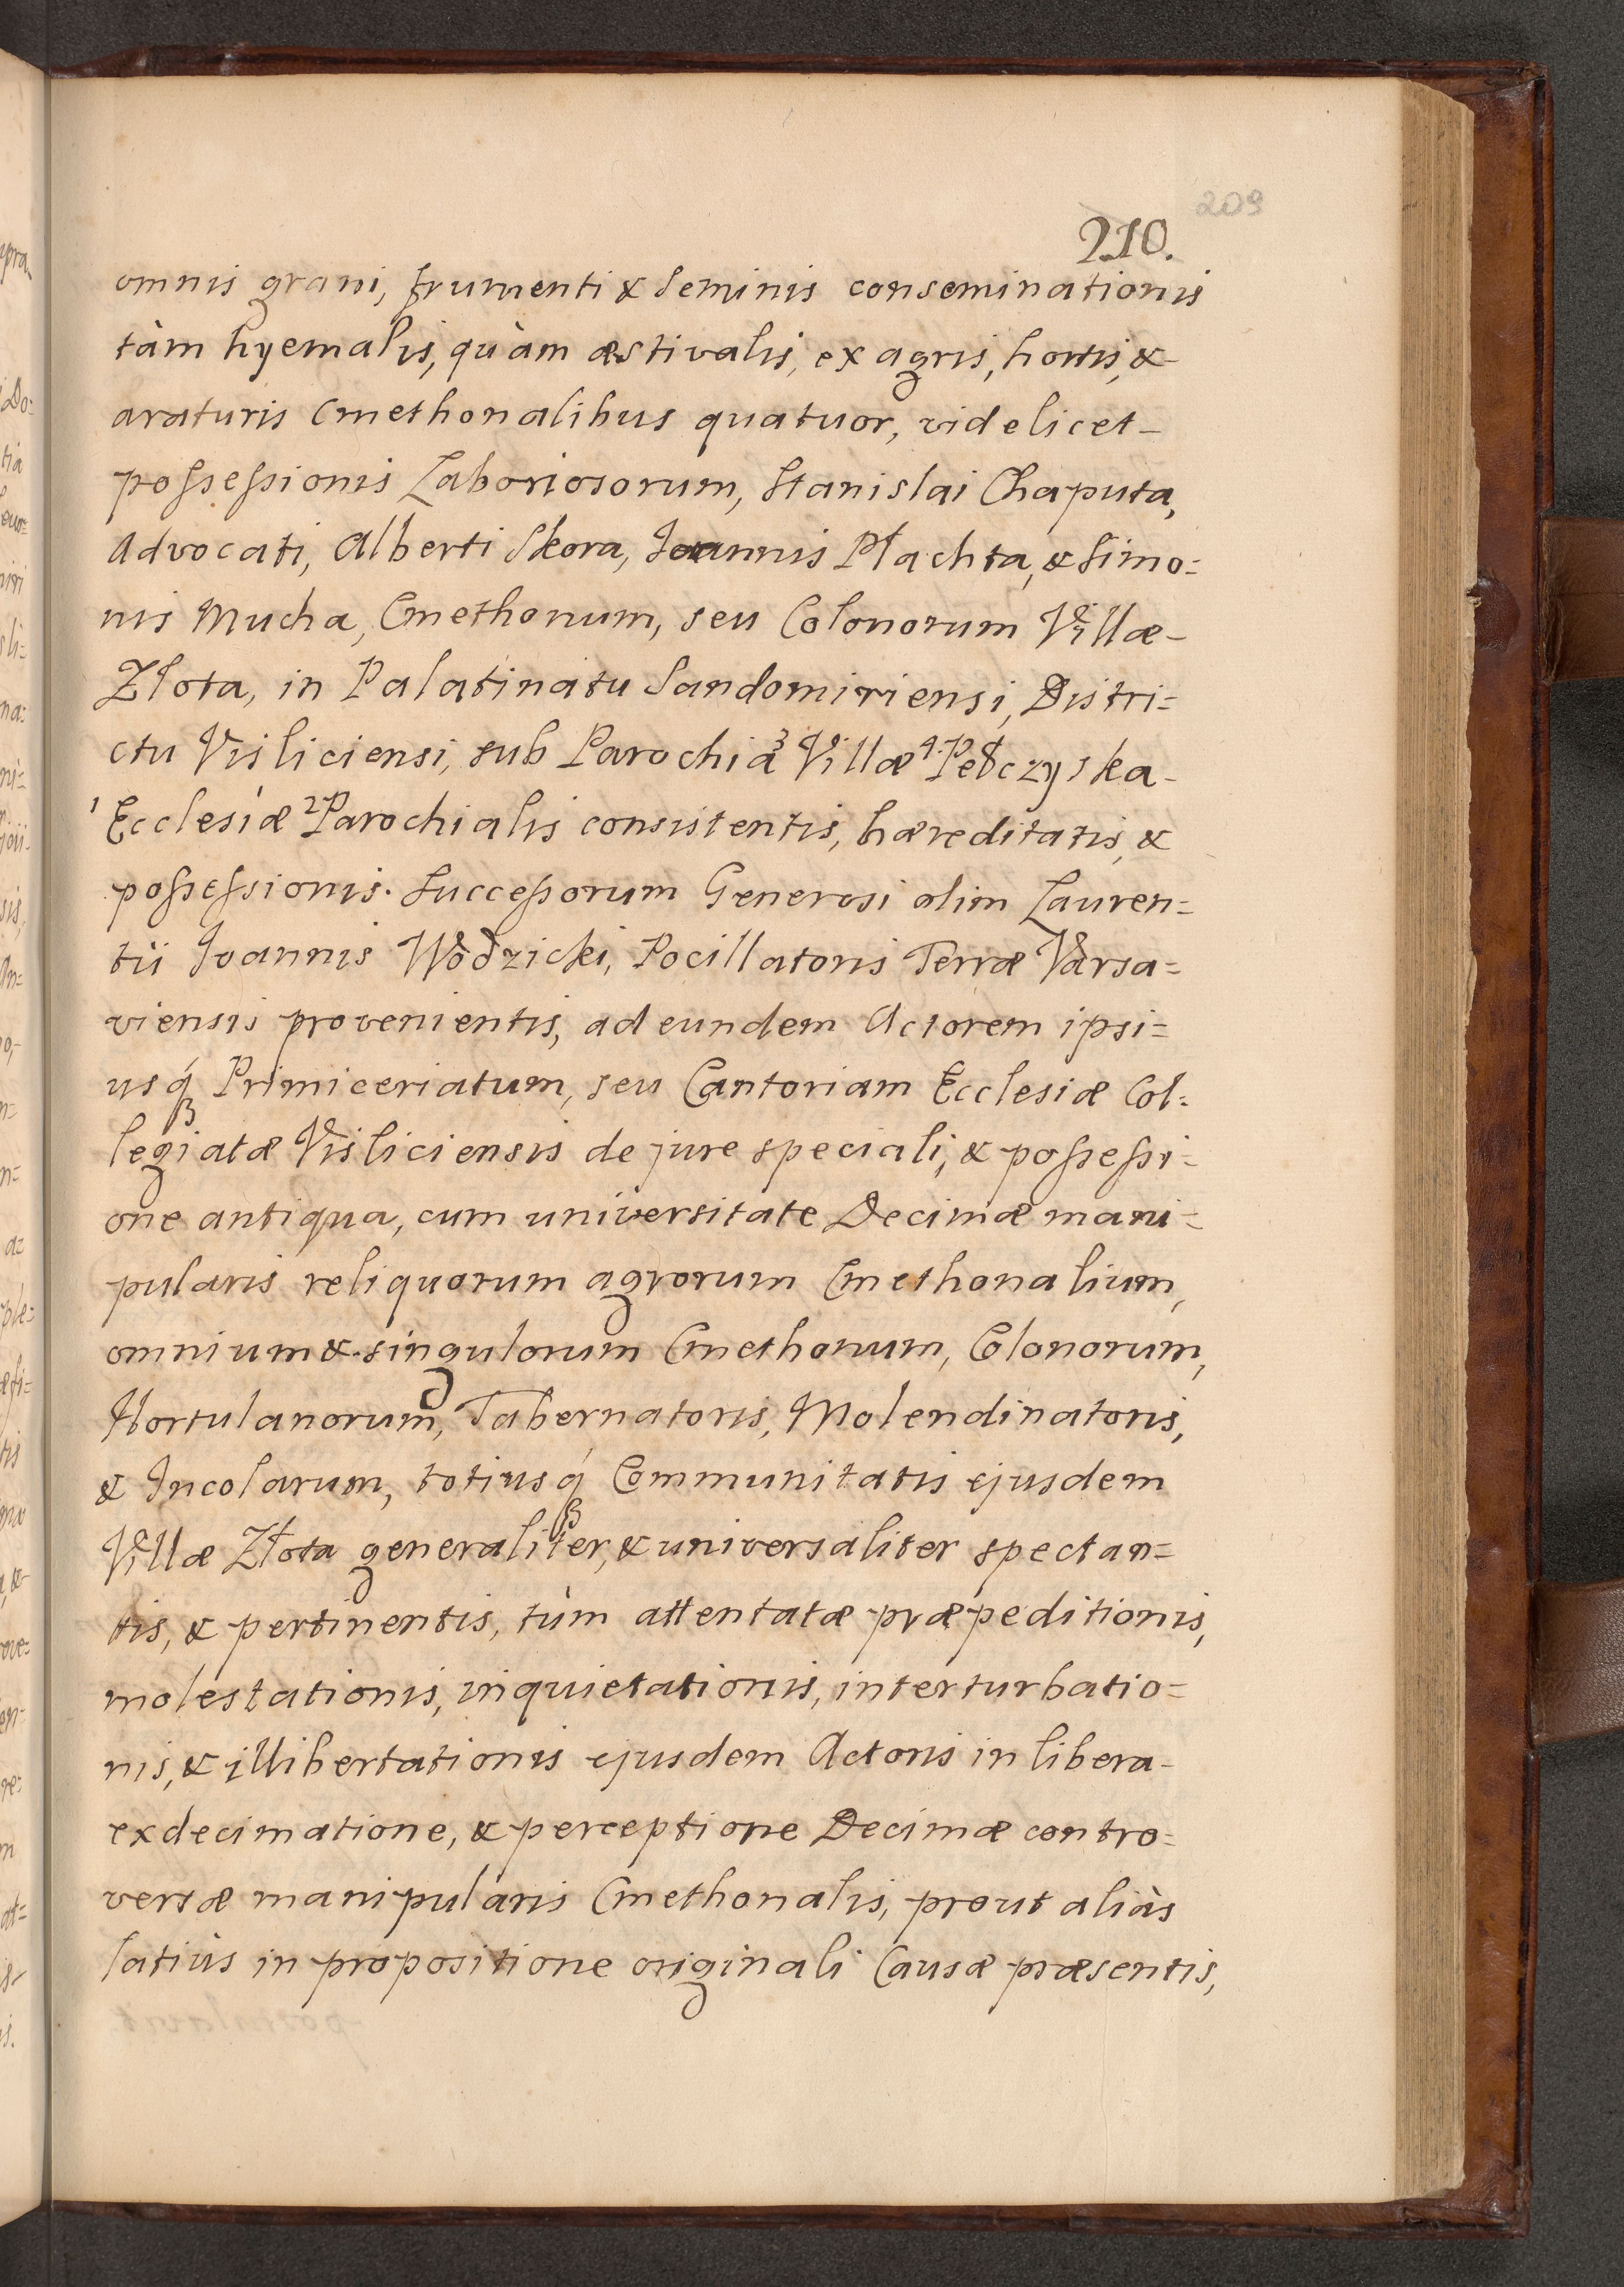 209
210.
omnis grani, frumenti & seminis conseminationis
tàm hyemalis, quàm æstivalis, ex agris, hortis, &
araturis Cmethonalibus quatuor, videlicet
possessionis Laboriosorum, Stanislai Chaputa,
Advocati, Alberti Skora, Joannis Płachta, & Simo=
nis Mucha, Cmethonum, seu Colonorum Villæ
Złota, in Palatinatu Sandomiriensi, Distri=
ctu Visliciensi, sub Parochia ³Villæ ⁴Pełczyska
¹Ecclesiæ ²Parochialis consistentis, hæreditatis, &
possessionis. Successorum Generosi olim Lauren=
tii Joannis Wodzicki, Pocillatoris Terræ Varsa=
viensis provenientis, ad eundem Actorem ipsi=
usq́ Primiceriatum, seu Cantoriam Ecclesiæ Col=
legiatæ Visliciensis de jure speciali, & possessi=
one antiqua, cum universitate Decimæ mani=
pularis reliquorum agrorum Cmethonalium,
omnium & singulorum Cmethonum, Colonorum,
Hortulanorum, Tabernatoris, Molendinatoris,
& Incolarum, totiusq́ Communitatis ejusdem
Villæ Złota generaliter, & universaliter spectan=
tis, & pertinentis, tùm attentatæ præpeditionis,
molestationis, inquietationis, interturbatio=
nis, & illibertationis ejusdem Actoris in libera
exdecimatione, & perceptione Decimæ contro=
versæ manipularis Cmethonalis, prout aliàs
latiùs in propositione originali Causæ præsentis,